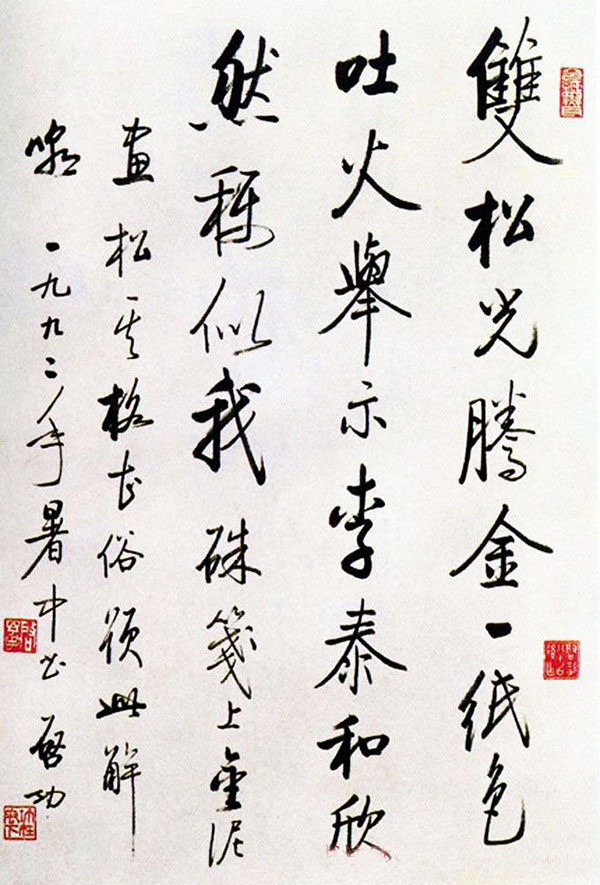 雙松光騰金一紙色
吐火舉示李泰和欣
然稱似我硃箋上金泥
畫松其格甚俗須此解
嘲 一九九二年暑中書 啓功